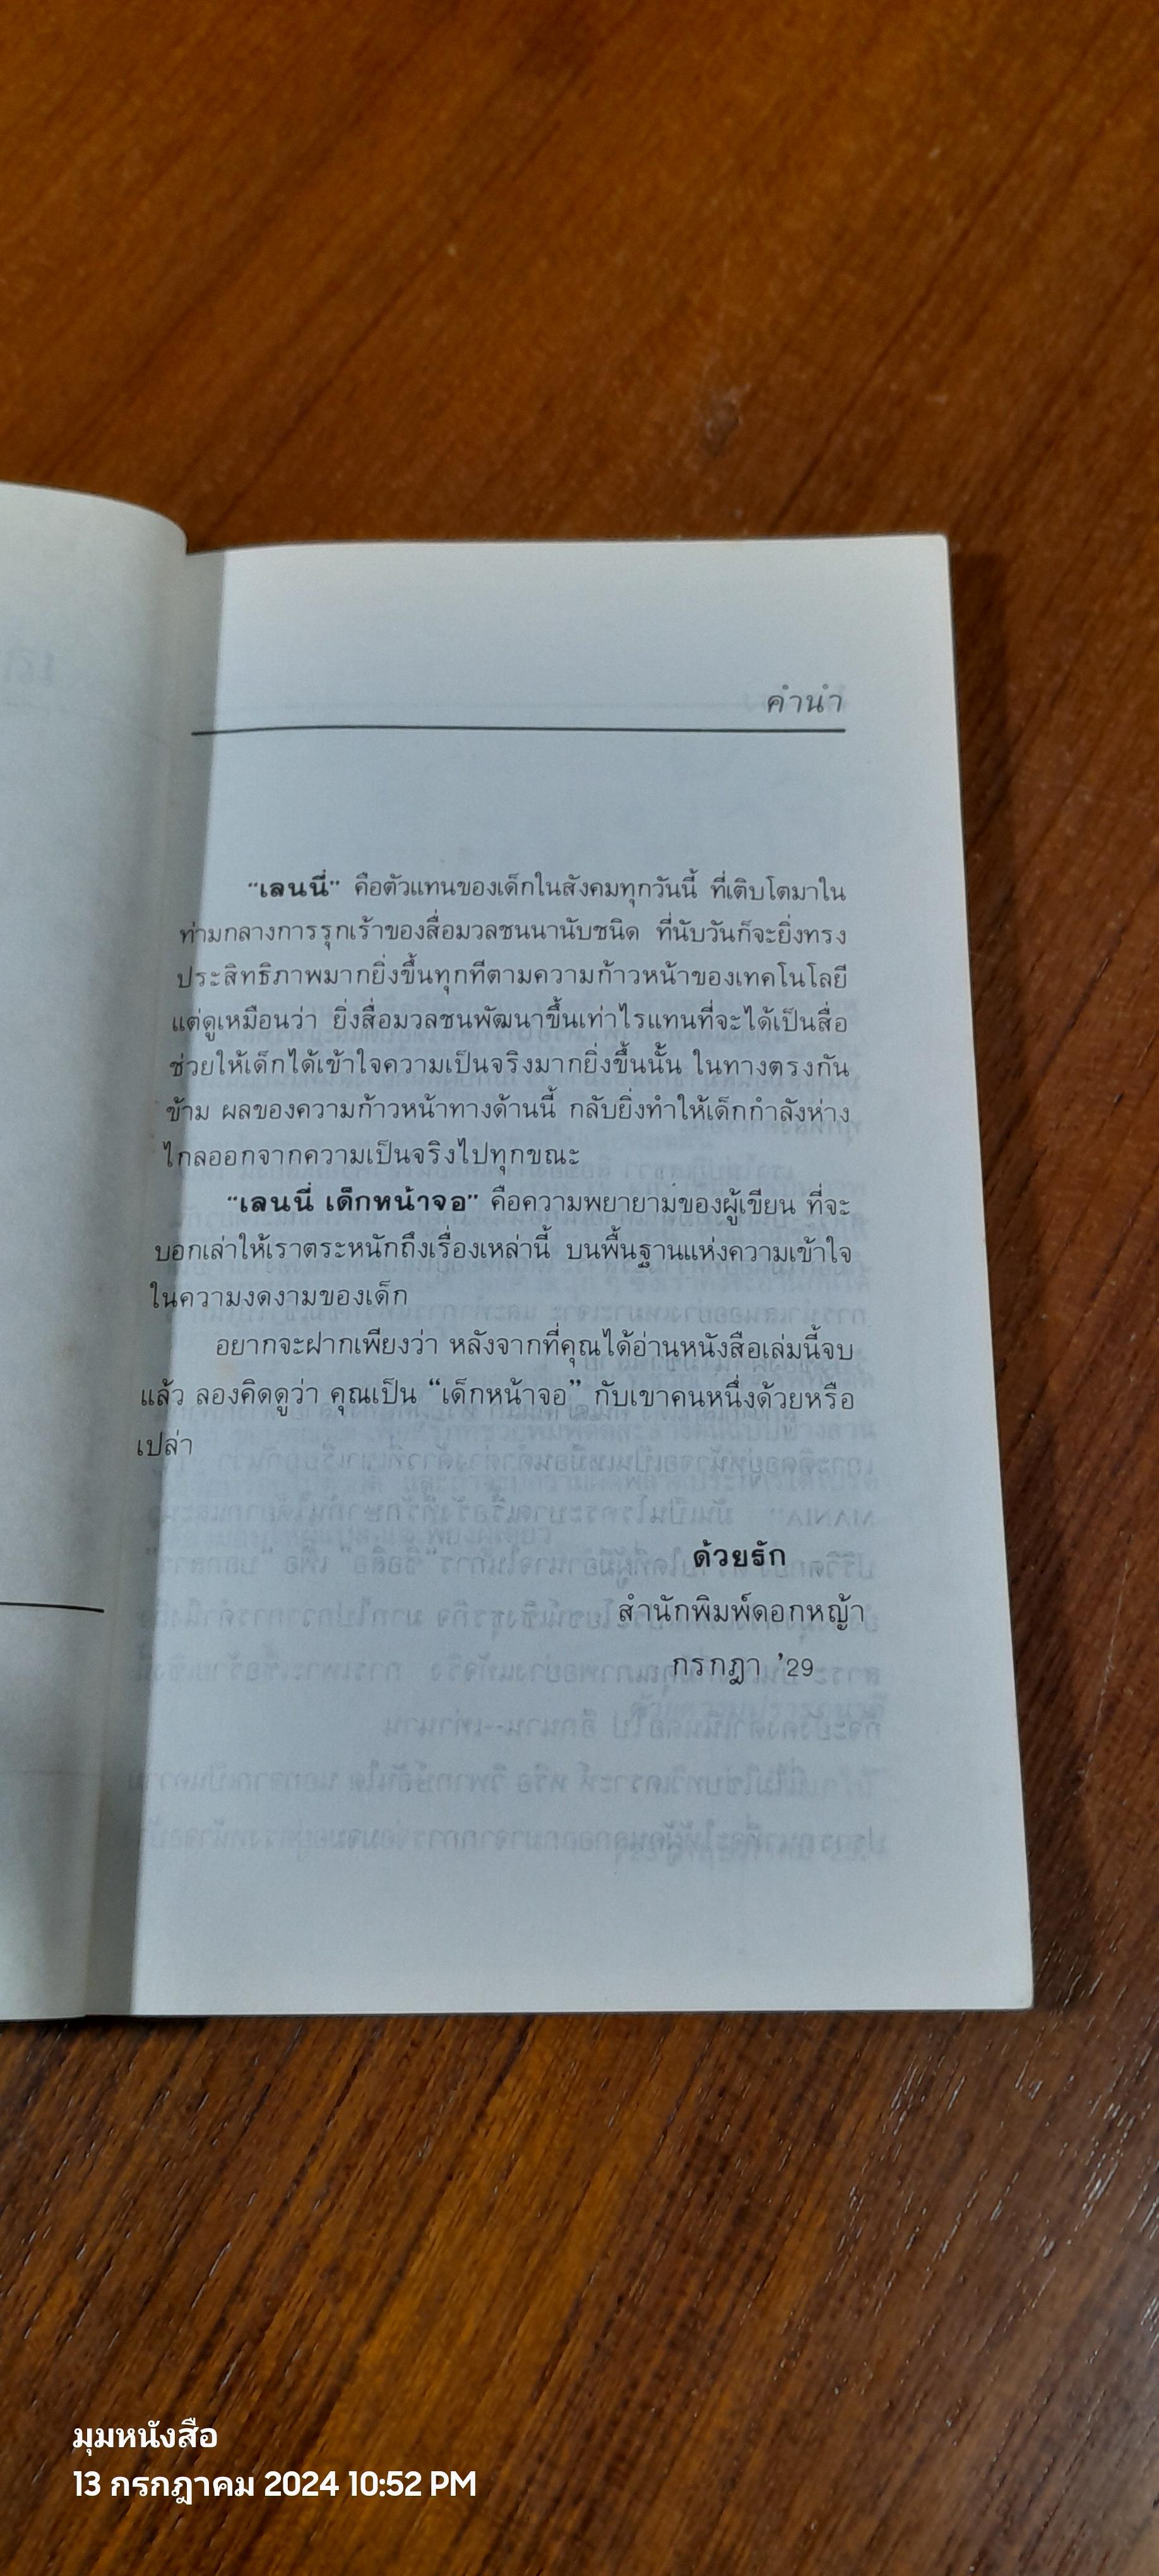 คำนำ
“เลนนี่” คือตัวแทนของเด็กในสังคมทุกวันนี้ ที่เติบโตมาใน
ท่ามกลางการรุกเร้าของสื่อมวลชนนานับชนิด ที่นับวันก็จะยิ่งทรง
ประสิทธิภาพมากยิ่งขึ้นทุกทีตามความก้าวหน้าของเทคโนโลยี
แต่ดูเหมือนว่า ยิ่งสื่อมวลชนพัฒนาขึ้นเท่าไรแทนที่จะได้เป็นสื่อ
ช่วยให้เด็กได้เข้าใจความเป็นจริงมากยิ่งขึ้นนั้น ในทางตรงกัน
ข้าม ผลของความก้าวหน้าทางด้านนี้ กลับยิ่งทำให้เด็กกำลังห่าง
ไกลออกจากความเป็นจริงไปทุกขณะ
“เลนนี่ เด็กหน้าจอ” คือความพยายามของผู้เขียน ที่จะ
บอกเล่าให้เราตระหนักถึงเรื่องเหล่านี้ บนพื้นฐานแห่งความเข้าใจ
ในความงดงามของเด็ก
อยากจะฝากเพียงว่า หลังจากที่คุณได้อ่านหนังสือเล่มนี้จบ
แล้ว ลองคิดดูว่า คุณเป็น “เด็กหน้าจอ” กับเขาคนหนึ่งด้วยหรือ
เปล่า
ด้วยรัก
สำนักพิมพ์ดอกหญ้า
กรกฎา ’29
มุมหนังสือ
13 กรกฎาคม 2024 10:52 PM